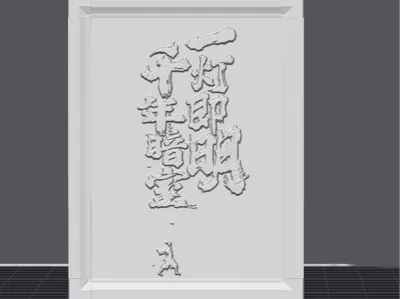 千年暗室
一灯即明